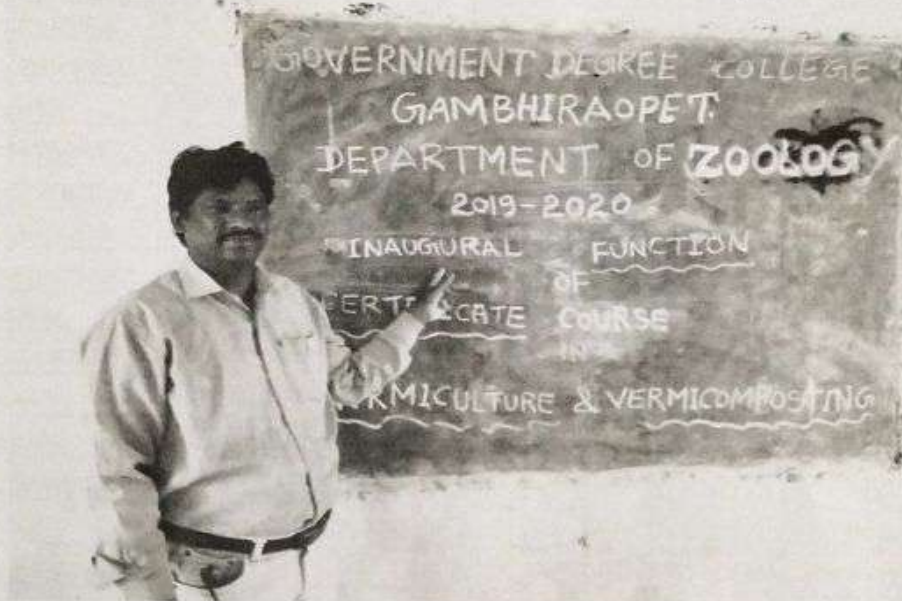 GOVERNMENT DEGREE COLLEGE
GAMBHIRAOPET.
DEPARTMENT OF ZOOLOGY
2019-2020
INAUGURAL FUNCTION
OF
CERTIFICATE COURSE
IN
VERMICULTURE & VERMICOMPOSTING